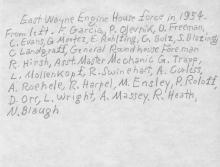 East Wayne Engine House force in 1954.
From left - F. Garcia, P. Olernik, D. Freeman,
C. Evans, G. Mertez, E. Rohlfing, G. Bolz, S. Blazing,
C. Landgraff, General Roundhouse Foreman
R. Hirsh, Asst Master Mechanic G. Trapp,
L. Mollenkopf, R. Swinehart, A. Curless,
A. Roehele, R. Harpel, M. Ensley, P. Roloff,
D. Orr, L. Wright, A. Massey, R. Heath,
N. Blaugh